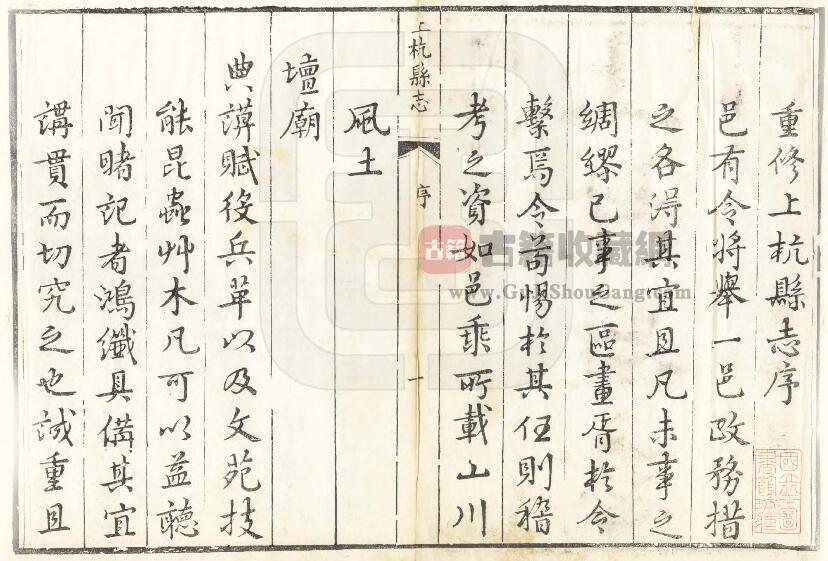 重修上杭縣志序
邑有令將舉一邑政務措
之各得其宜且凡未事之
綢繆已事之區畫胥於令
繫焉令苟惕於其任則稽
考之資如邑乘所載山川
風土
上杭縣志
序
一
壇廟
典謨賦役兵革以及文苑技
能昆蟲艸木凡可以益聽
聞睹記者鴻纖具備其宜
講貫而切究之也誠重且
古籍
古籍收藏網
www.GujiShouCang.com